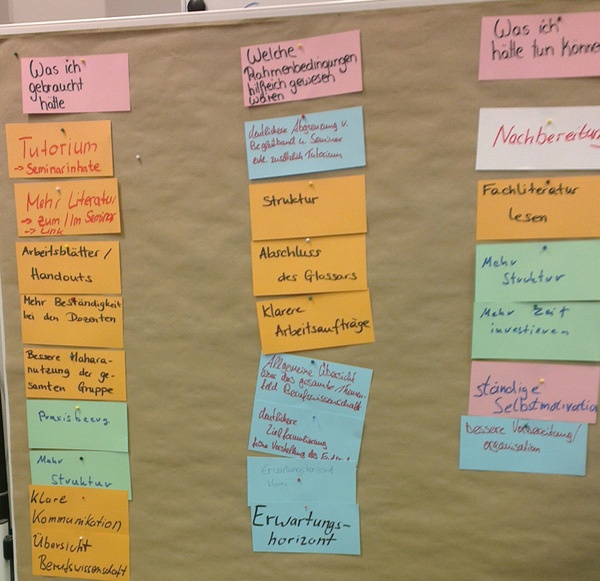 Was ich
gebraucht
hätte
Tutorium
→ Seminarinhalte
Mehr Literatur
→ zum/Im Seminar
→ Link
Arbeitsblätter/
Handouts
Mehr Beständigkeit
bei den Dozenten
Bessere Mahara-
nutzung der ge-
samten Gruppe
Praxisbezug
Mehr
Struktur
Klare
Kommunikation
Übersicht
Berufswissenschaft
Welche
Rahmenbedingungen
hilfreich gewesen
wären
deutlichere Abgrenzung v.
Begleitband u. Seminar
Tutorium
Struktur
Abschluss
des Glossars
Klarere
Arbeitsaufträge
Allgemeine Übersicht
über das gesamte Themen-
feld Berufswissenschaft
deutlichere
Zielformulierung
Erwartungshorizont
klären
Erwartungs-
horizont
Was ich
hätte tun könne
Nachbereitun
Fachliteratur
lesen
Mehr
Struktur
Mehr Zeit
investieren
ständige
Selbstmotivation
bessere Vorbereitung/
organisation